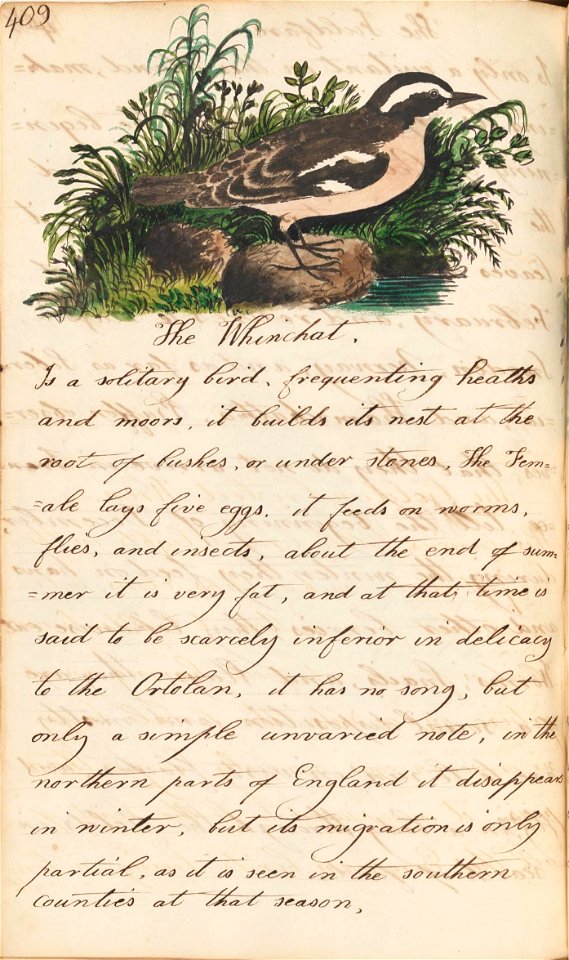 409
The Whinchat.
Is a solitary bird, frequenting heaths
and moors, it builds its nest at the
root of bushes, or under stones, The Fem=
=ale lays five eggs, it feeds on worms,
flies, and insects, about the end of sum=
=mer it is very fat, and at that time is
said to be scarcely inferior in delicacy
to the Ortolan, it has no song, but
only a simple unvaried note, in the
northern parts of England it disappears
in winter, but its migration is only
partial, as it is seen in the southern
counties at that season,